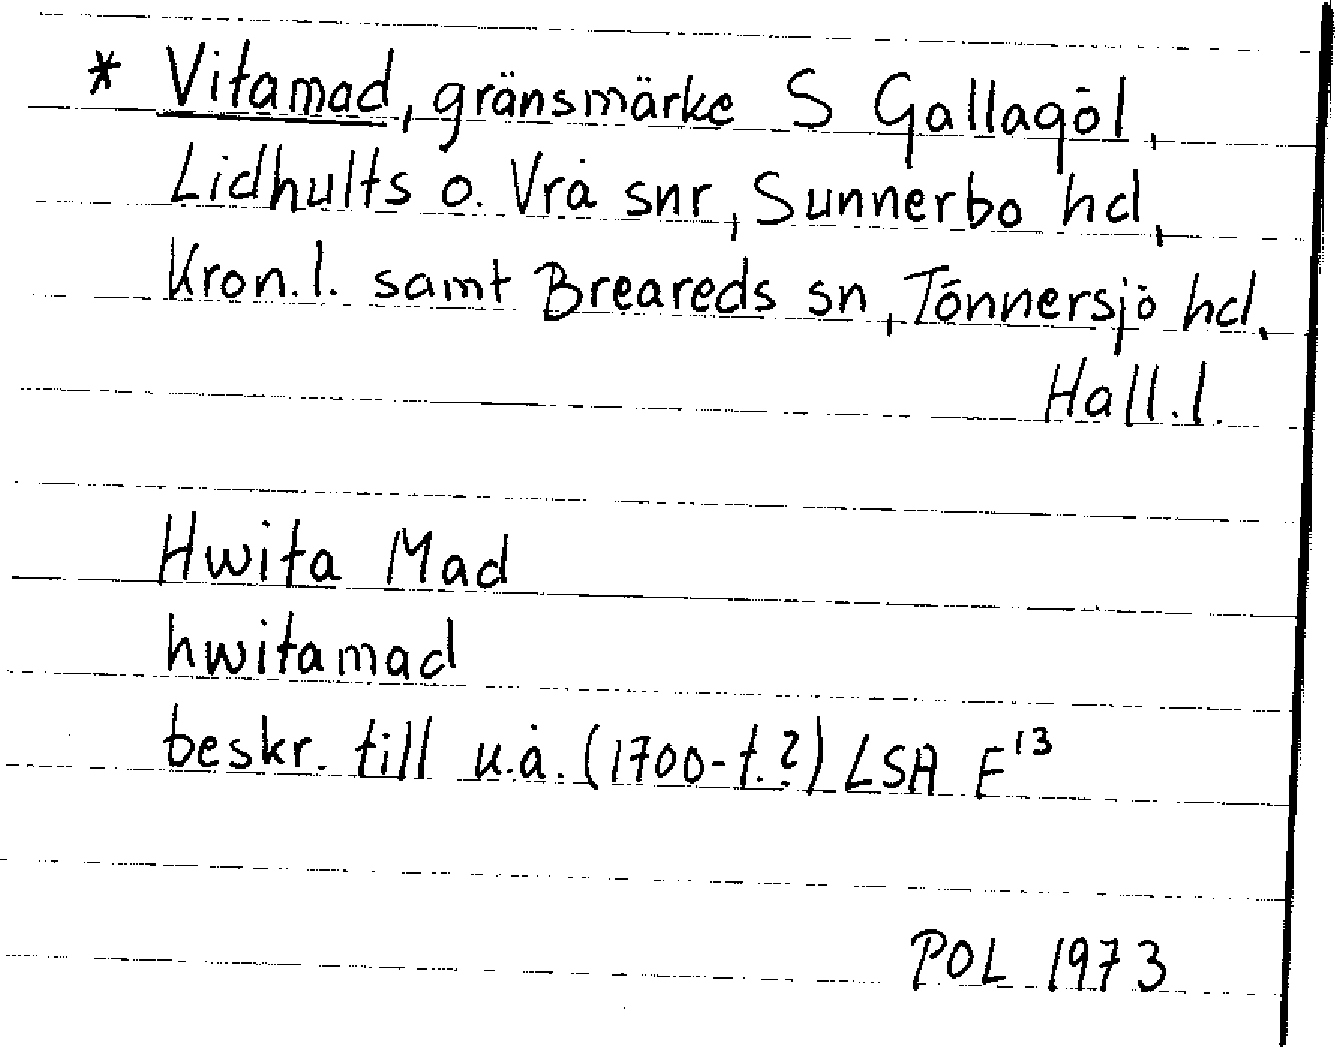 * Vitamad, gränsmärke S Gallagöl,
Lidhults o. Vrå snr, Sunnerbo hd,
Kron.l. samt Breareds sn, Tönnersjö hd,
Hall.l.
Hwita Mad
hwitamad
beskr. till u.å. (1700-t.?) LSA E¹³
POL 1973